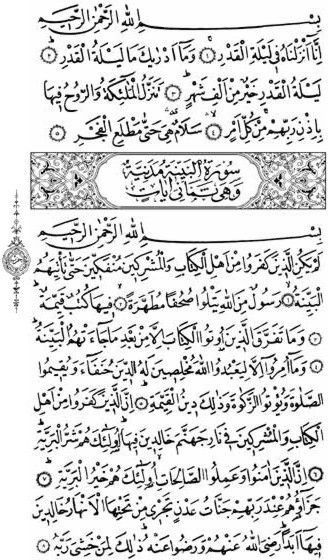 بِسْمِ اللهِ الرَّحْمٰنِ الرَّحِيمِ
اِنَّا اَنْزَلْنَاهُ فِي لَيْلَةِ الْقَدْرِ ﴿١﴾ وَمَا اَدْرٰيكَ مَا لَيْلَةُ الْقَدْرِ ﴿٢﴾
لَيْلَةُ الْقَدْرِ خَيْرٌ مِنْ اَلْفِ شَهْرٍ ﴿٣﴾ تَنَزَّلُ الْمَلٰئِكَةُ وَالرُّوحُ فِيهَا
بِاِذْنِ رَبِّهِمْ مِنْ كُلِّ اَمْرٍ ﴿٤﴾ سَلَامٌ هِيَ حَتّٰى مَطْلَعِ الْفَجْرِ ﴿٥﴾
سُورَةُ الْبَيِّنَةِ مَدَنِيَّةٌ
وَهِيَ ثَمَانِي اٰيَاتٍ
بِسْمِ اللهِ الرَّحْمٰنِ الرَّحِيمِ
لَمْ يَكُنِ الَّذِينَ كَفَرُوا مِنْ اَهْلِ الْكِتَابِ وَالْمُشْرِكِينَ مُنْفَكِّينَ حَتّٰى تَأْتِيَهُمُ
الْبَيِّنَةُ ﴿١﴾ رَسُولٌ مِنَ اللهِ يَتْلُوا صُحُفًا مُطَهَّرَةً ﴿٢﴾ فِيهَا كُتُبٌ قَيِّمَةٌ
﴿٣﴾ وَمَا تَفَرَّقَ الَّذِينَ اُوتُوا الْكِتَابَ اِلَّا مِنْ بَعْدِ مَا جَاءَتْهُمُ الْبَيِّنَةُ
﴿٤﴾ وَمَا اُمِرُوا اِلَّا لِيَعْبُدُوا اللهَ مُخْلِصِينَ لَهُ الدِّينَ حُنَفَاءَ وَيُقِيمُوا
الصَّلٰوةَ وَيُؤْتُوا الزَّكٰوةَ وَذٰلِكَ دِينُ الْقَيِّمَةِ ﴿٥﴾ اِنَّ الَّذِينَ كَفَرُوا مِنْ اَهْلِ
الْكِتَابِ وَالْمُشْرِكِينَ فِي نَارِ جَهَنَّمَ خَالِدِينَ فِيهَا اُولٰئِكَ هُمْ شَرُّ الْبَرِيَّةِ
﴿٦﴾ اِنَّ الَّذِينَ اٰمَنُوا وَعَمِلُوا الصَّالِحَاتِ اُولٰئِكَ هُمْ خَيْرُ الْبَرِيَّةِ ﴿٧﴾
جَزَاؤُهُمْ عِنْدَ رَبِّهِمْ جَنَّاتُ عَدْنٍ تَجْرِي مِنْ تَحْتِهَا الْاَنْهَارُ خَالِدِينَ
فِيهَا اَبَدًا رَضِيَ اللهُ عَنْهُمْ وَرَضُوا عَنْهُ ذٰلِكَ لِمَنْ خَشِيَ رَبَّهُ ﴿٨﴾